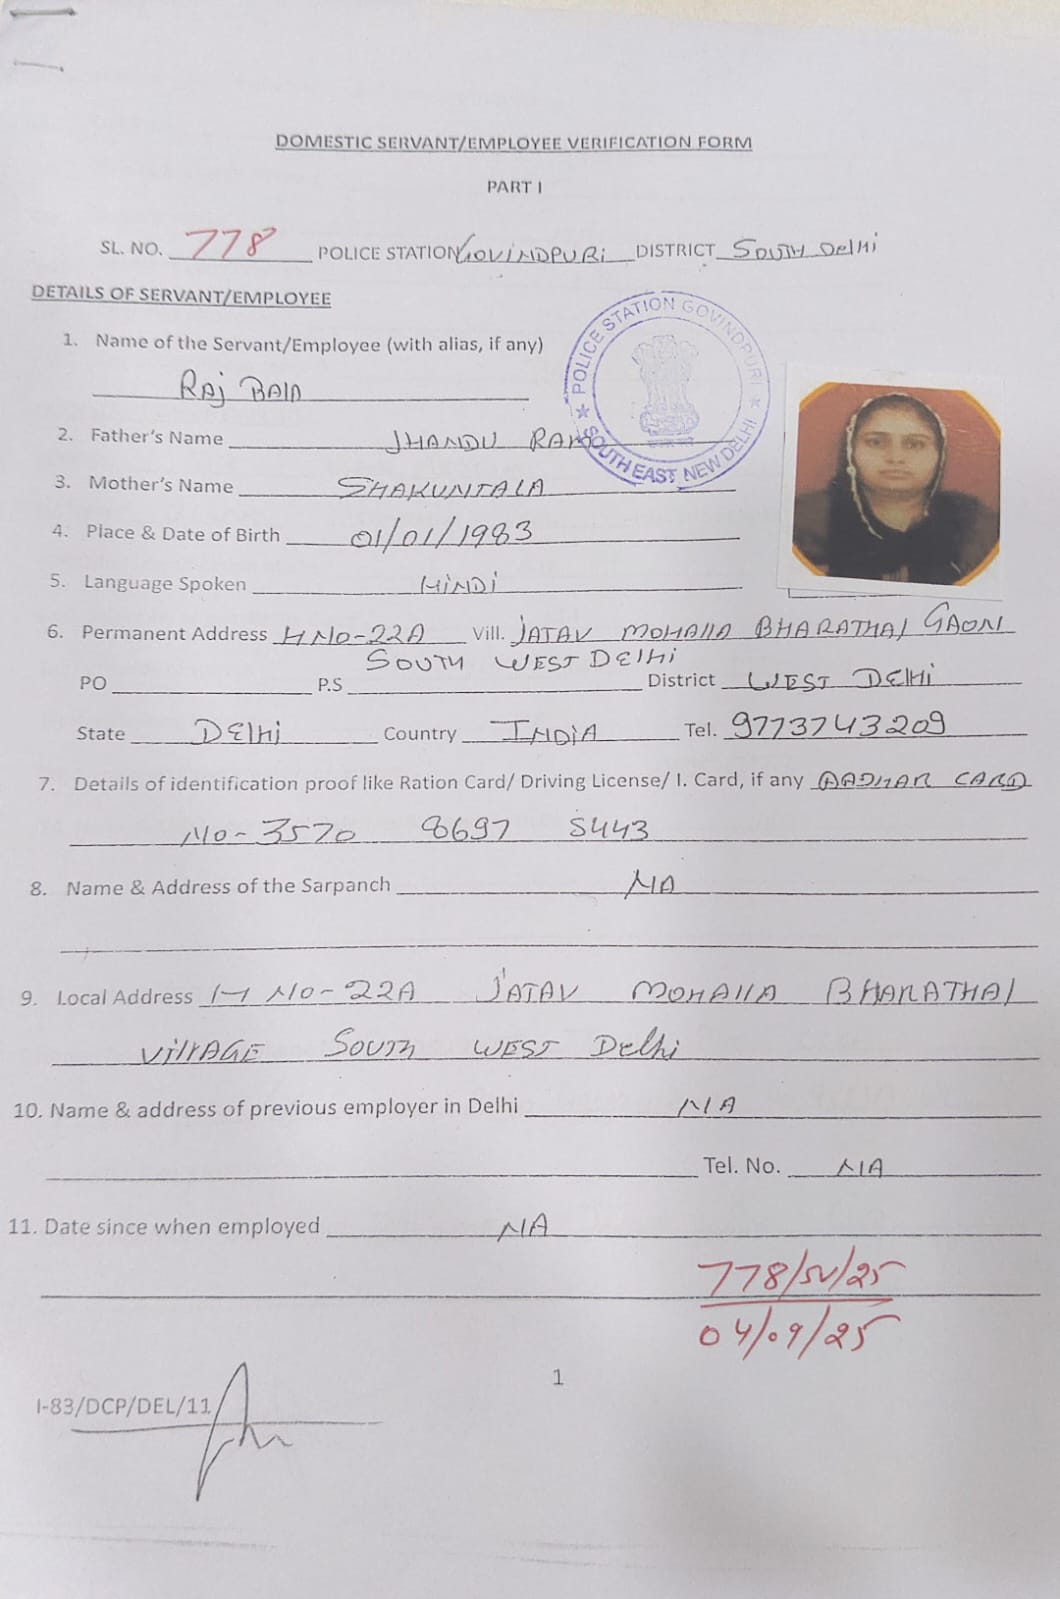 DOMESTIC SERVANT/EMPLOYEE VERIFICATION FORM
PART I
SL. NO. 778 POLICE STATION GOVINDPURI DISTRICT SOUTH DELHI
DETAILS OF SERVANT/EMPLOYEE
POLICE STATION GOVINDPURI
SOUTH EAST NEW DELHI
1. Name of the Servant/Employee (with alias, if any)
RAJ BALA
2. Father's Name JHANDU RAM
3. Mother's Name SHAKUNTALA
4. Place & Date of Birth 01/01/1983
5. Language Spoken HINDI
6. Permanent Address H NO-22A Vill. JATAV MOHALLA BHARATHAL GAON
SOUTH WEST DELHI
PO P.S District WEST DELHI
State DELHI Country INDIA Tel. 9773743209
7. Details of identification proof like Ration Card/ Driving License/ I. Card, if any AADHAR CARD
NO-3570 8697 5443
8. Name & Address of the Sarpanch NA
9. Local Address H NO-22A JATAV MOHALLA BHARATHAL
VILLAGE SOUTH WEST Delhi
10. Name & address of previous employer in Delhi NA
Tel. No. NA
11. Date since when employed NA
778/SV/25
04/09/25
1
I-83/DCP/DEL/11